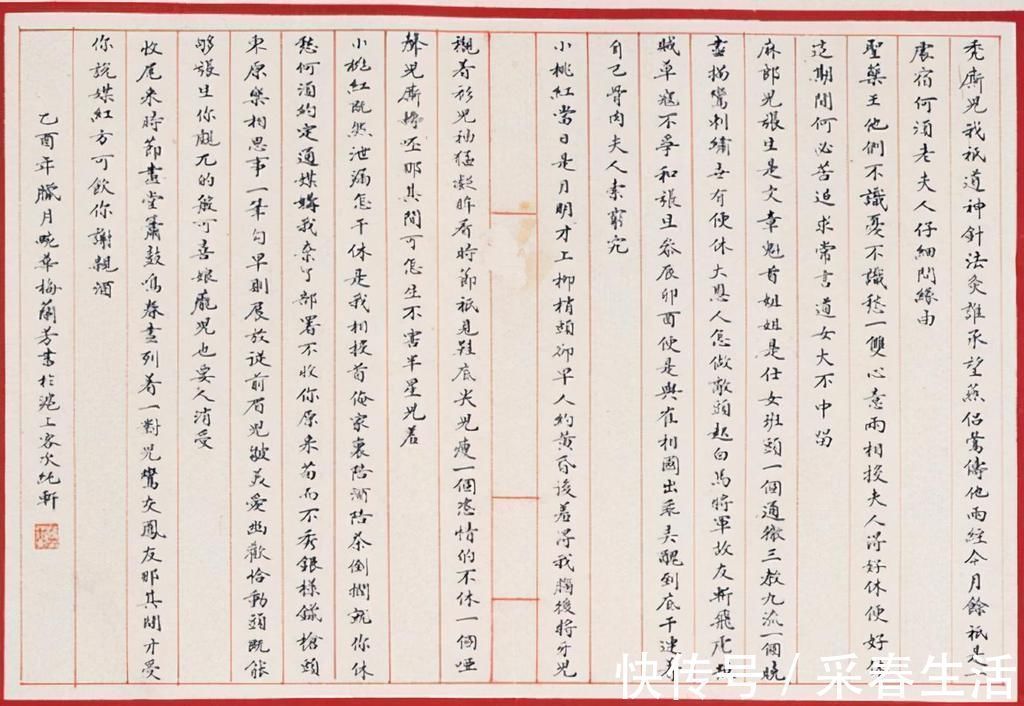 秃廝兒我祇道神針法灸誰承望燕侶鶯儔他兩經今月餘祇是一
處宿何須老夫人仔細問緣由
聖藥王他們不識憂不識愁一雙心意兩相投夫人得好休便好休
這期間何必苦追求常言道女大不中留
麻郎兒張生是文章魁首姐姐是仕女班頭一個通徹三教九流一個曉
盡描鸞刺繡世有便休大恩人怎做敵頭起白馬將軍故友斬飛虎
賊草寇不爭和張生參辰卯酉便是與崔相國出乖弄醜到底干連着
自己骨肉夫人索窮究
小桃紅當日是月明才上柳梢頭卻早人約黃昏後羞得我腦後將牙兒
襯着衫兒袖猛凝眸看時節祇見鞋底尖兒瘦一個恣情的不休一個啞
聲兒廝耨呸那其間可怎生不害半星兒羞
小桃紅既然泄漏怎干休是我相投首俺家裏陪酒陪茶倒撋就你休
愁何須約定通媒媾我棄了部署不收你原來苗而不秀銀樣鑞槍頭
東原樂相思事一筆勾早則展放從前眉兒皺美愛幽歡恰動頭既能
够張生你覷兀的般可喜娘龐兒也要人消受
收尾來時節畫堂簫鼓鳴春晝列着一對兒鸞交鳳友那其間才受
你說媒紅方可飲你謝親酒
乙酉年臘月畹華梅蘭芳書於滬上客次純軒
快传号/采春生活